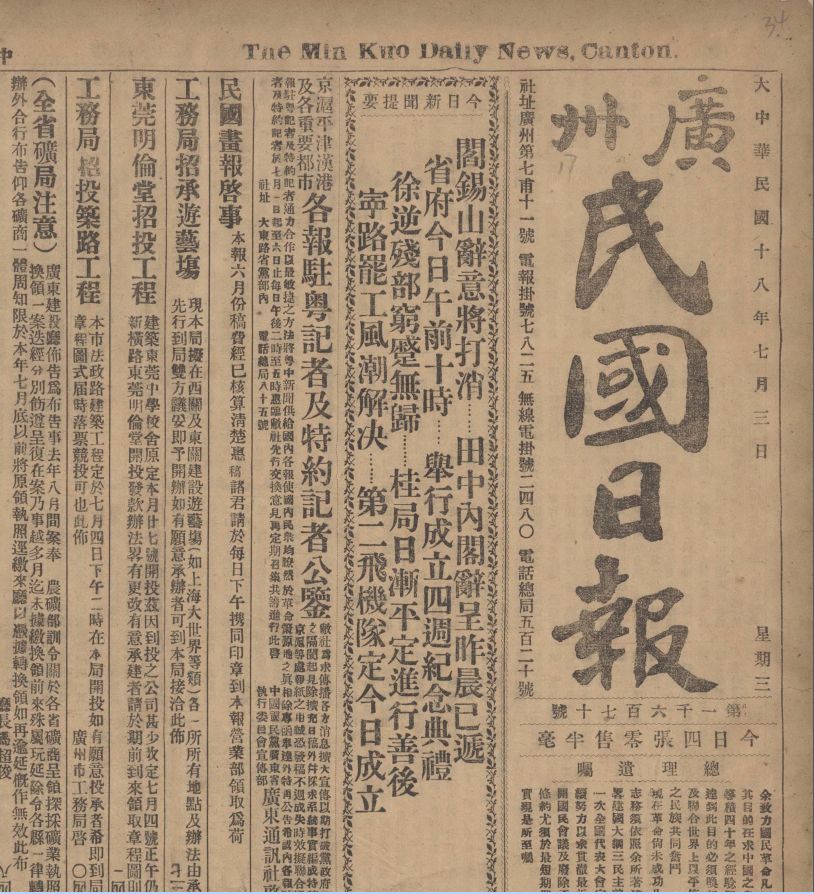 34
The Min Kuo Daily News, Canton.
中
大中華民國十八年七月三日 星期三
廣州
民國日報
第一千六百七十號
今日四張零售半毫
總理遺囑
余致力國民革命凡
其目的在求中國之
學積四十年之經驗
達到此目的必須喚
及聯合世界上以平
之民族共同奮鬥
現在革命尚未成功
志務須依照余所著
畧建國大綱三民主
一次全國代表大會
續努力以求貫徹最
開國民會議及廢除
條約尤須於最短期
實現是所至囑
社址廣州第七甫十一號 電報掛號七八二五 無線電掛號二四八〇 電話總局五百二十號
今日新聞提要
閻錫山辭意將打消……田中內閣辭呈昨晨已遞
省府今日午前十時……舉行成立四週紀念典禮
徐逆殘部窮蹙無歸……桂局日漸平定進行善後
寧路罷工風潮解决……第二飛機隊定今日成立
京滬平津漢港
及各重要都市
各報駐粤記者及特約記者公鑒
社址 大東路省黨部內 電話總局八十五號
中國國民黨廣東省
執行委員會宣傳部
廣東通訊社啟
民國畫報啓事
本報六月份稿費經已核算清楚惠稿諸君請於每日下午携同印章到本報營業部領取爲荷
工務局招承遊藝塲
現本局擬在西關及東關建設遊藝塲(如上海大世界等類)各一所所有地點及辦法由承
先行到局雙方議妥即予開辦如有願意承辦者可到本局接洽此佈
東莞明倫堂招投工程
建築東莞中學校舍原定本月廿七號開投茲因到投之公司甚少改定七月四號正午仍
新橫路東莞明倫堂開投發款辦法畧有更改有意承建者請於期前到來領取章程圖則
工務局招投築路工程
本市法政路建築工程定於七月四日下午二時在本局開投如有願意投承者希即到局
章程圖式屆時落票競投可也此佈
廣州市工務局啓
(全省礦局注意)
廣東建設廳佈告爲布告事去年八月間案奉 農礦部訓令關於各省礦商呈領探採礦業執照
換領一案迭經分別飭遵呈復在案乃事越多月迄未據繳換領前來殊屬玩延除令各縣一律轉
辦外合行布告仰各礦商一體周知限於本年七月底以前將原領執照逕繳來廳以憑據轉換領如再逾延慨作無效此布